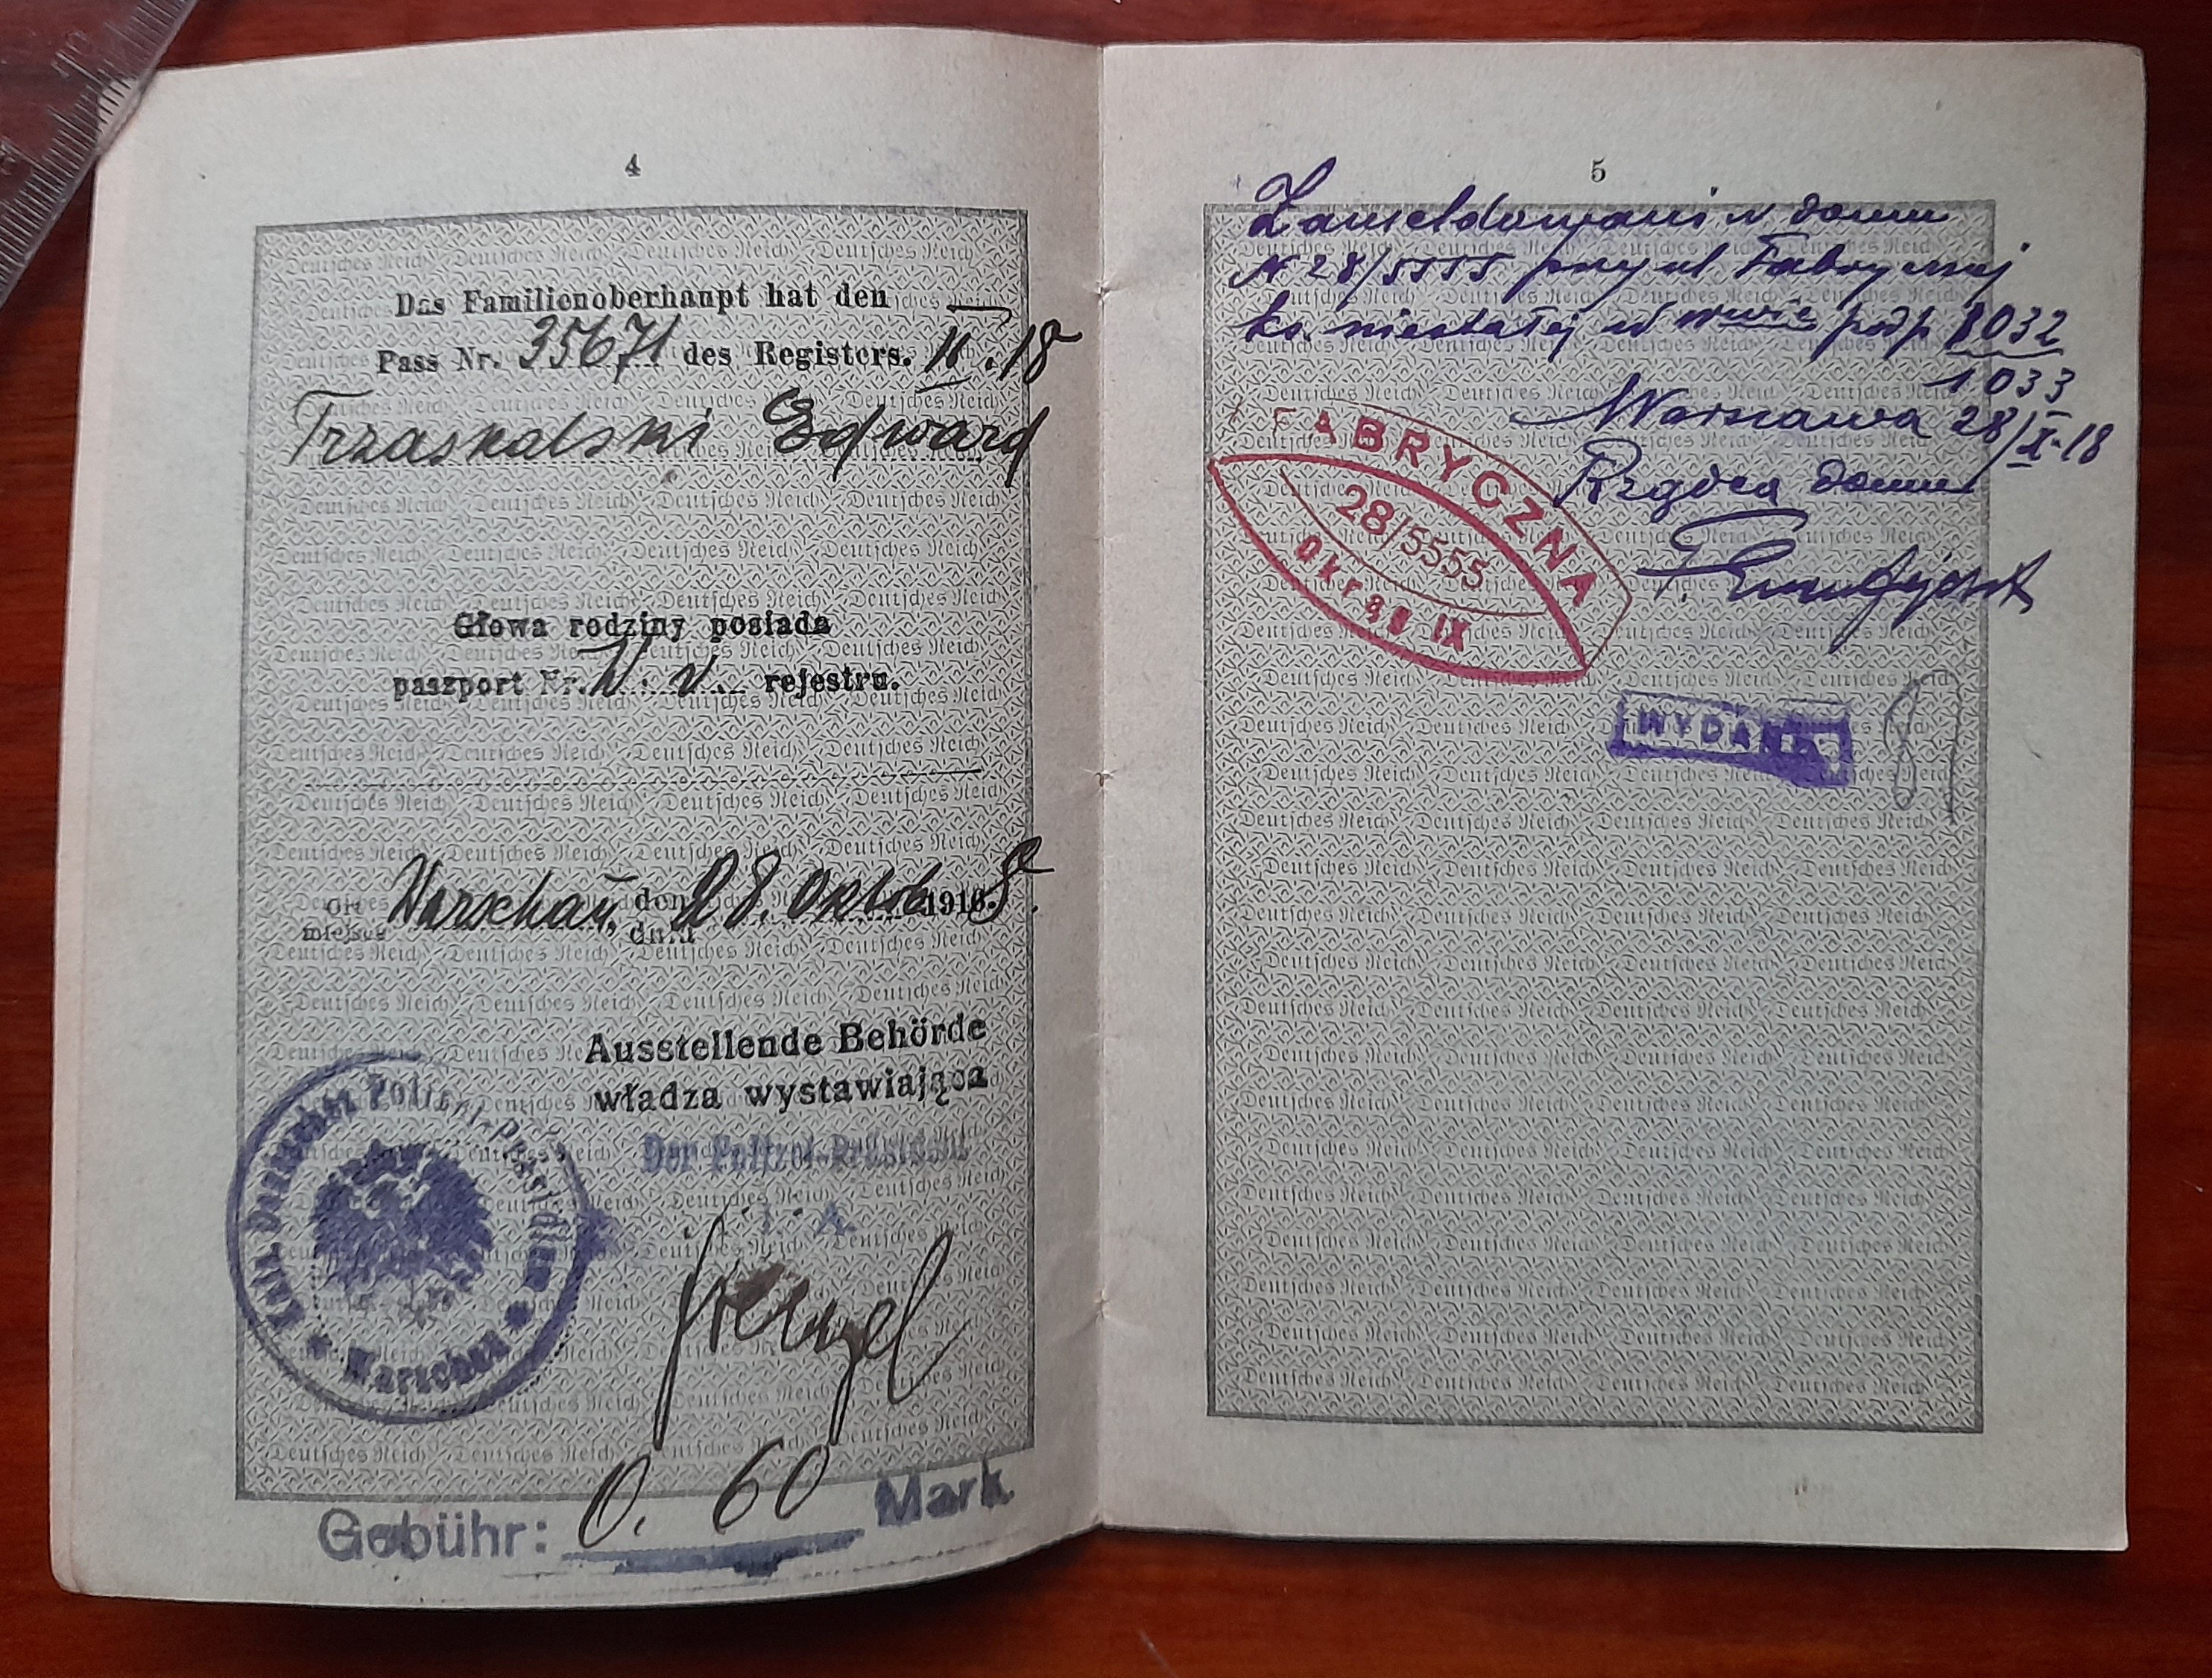 4
Das Familienoberhaupt hat den
Pass Nr. 35671 des Registers. II. 18
Trzaskalski Edward
Głowa rodziny posiada
paszport Nr. W. v. rejestru.
Ort Warschau, den 28. Oktob 1918.
miejsce dnia
Ausstellende Behörde
władza wystawiająca
Der Polizei-Präsident
I. A.
Kais. Deutsches Polizei-Präsidium
Warschau
Gebühr: 0.60 Mark
5
Zameldowani w domu
N 28/5555 przy ul Fabrycznej
ks. niestałej pod 1032
1033
Warszawa 28/X-18
Rządca domu
FABRYCZNA
28/5555
Okrąg IX
WYDANO